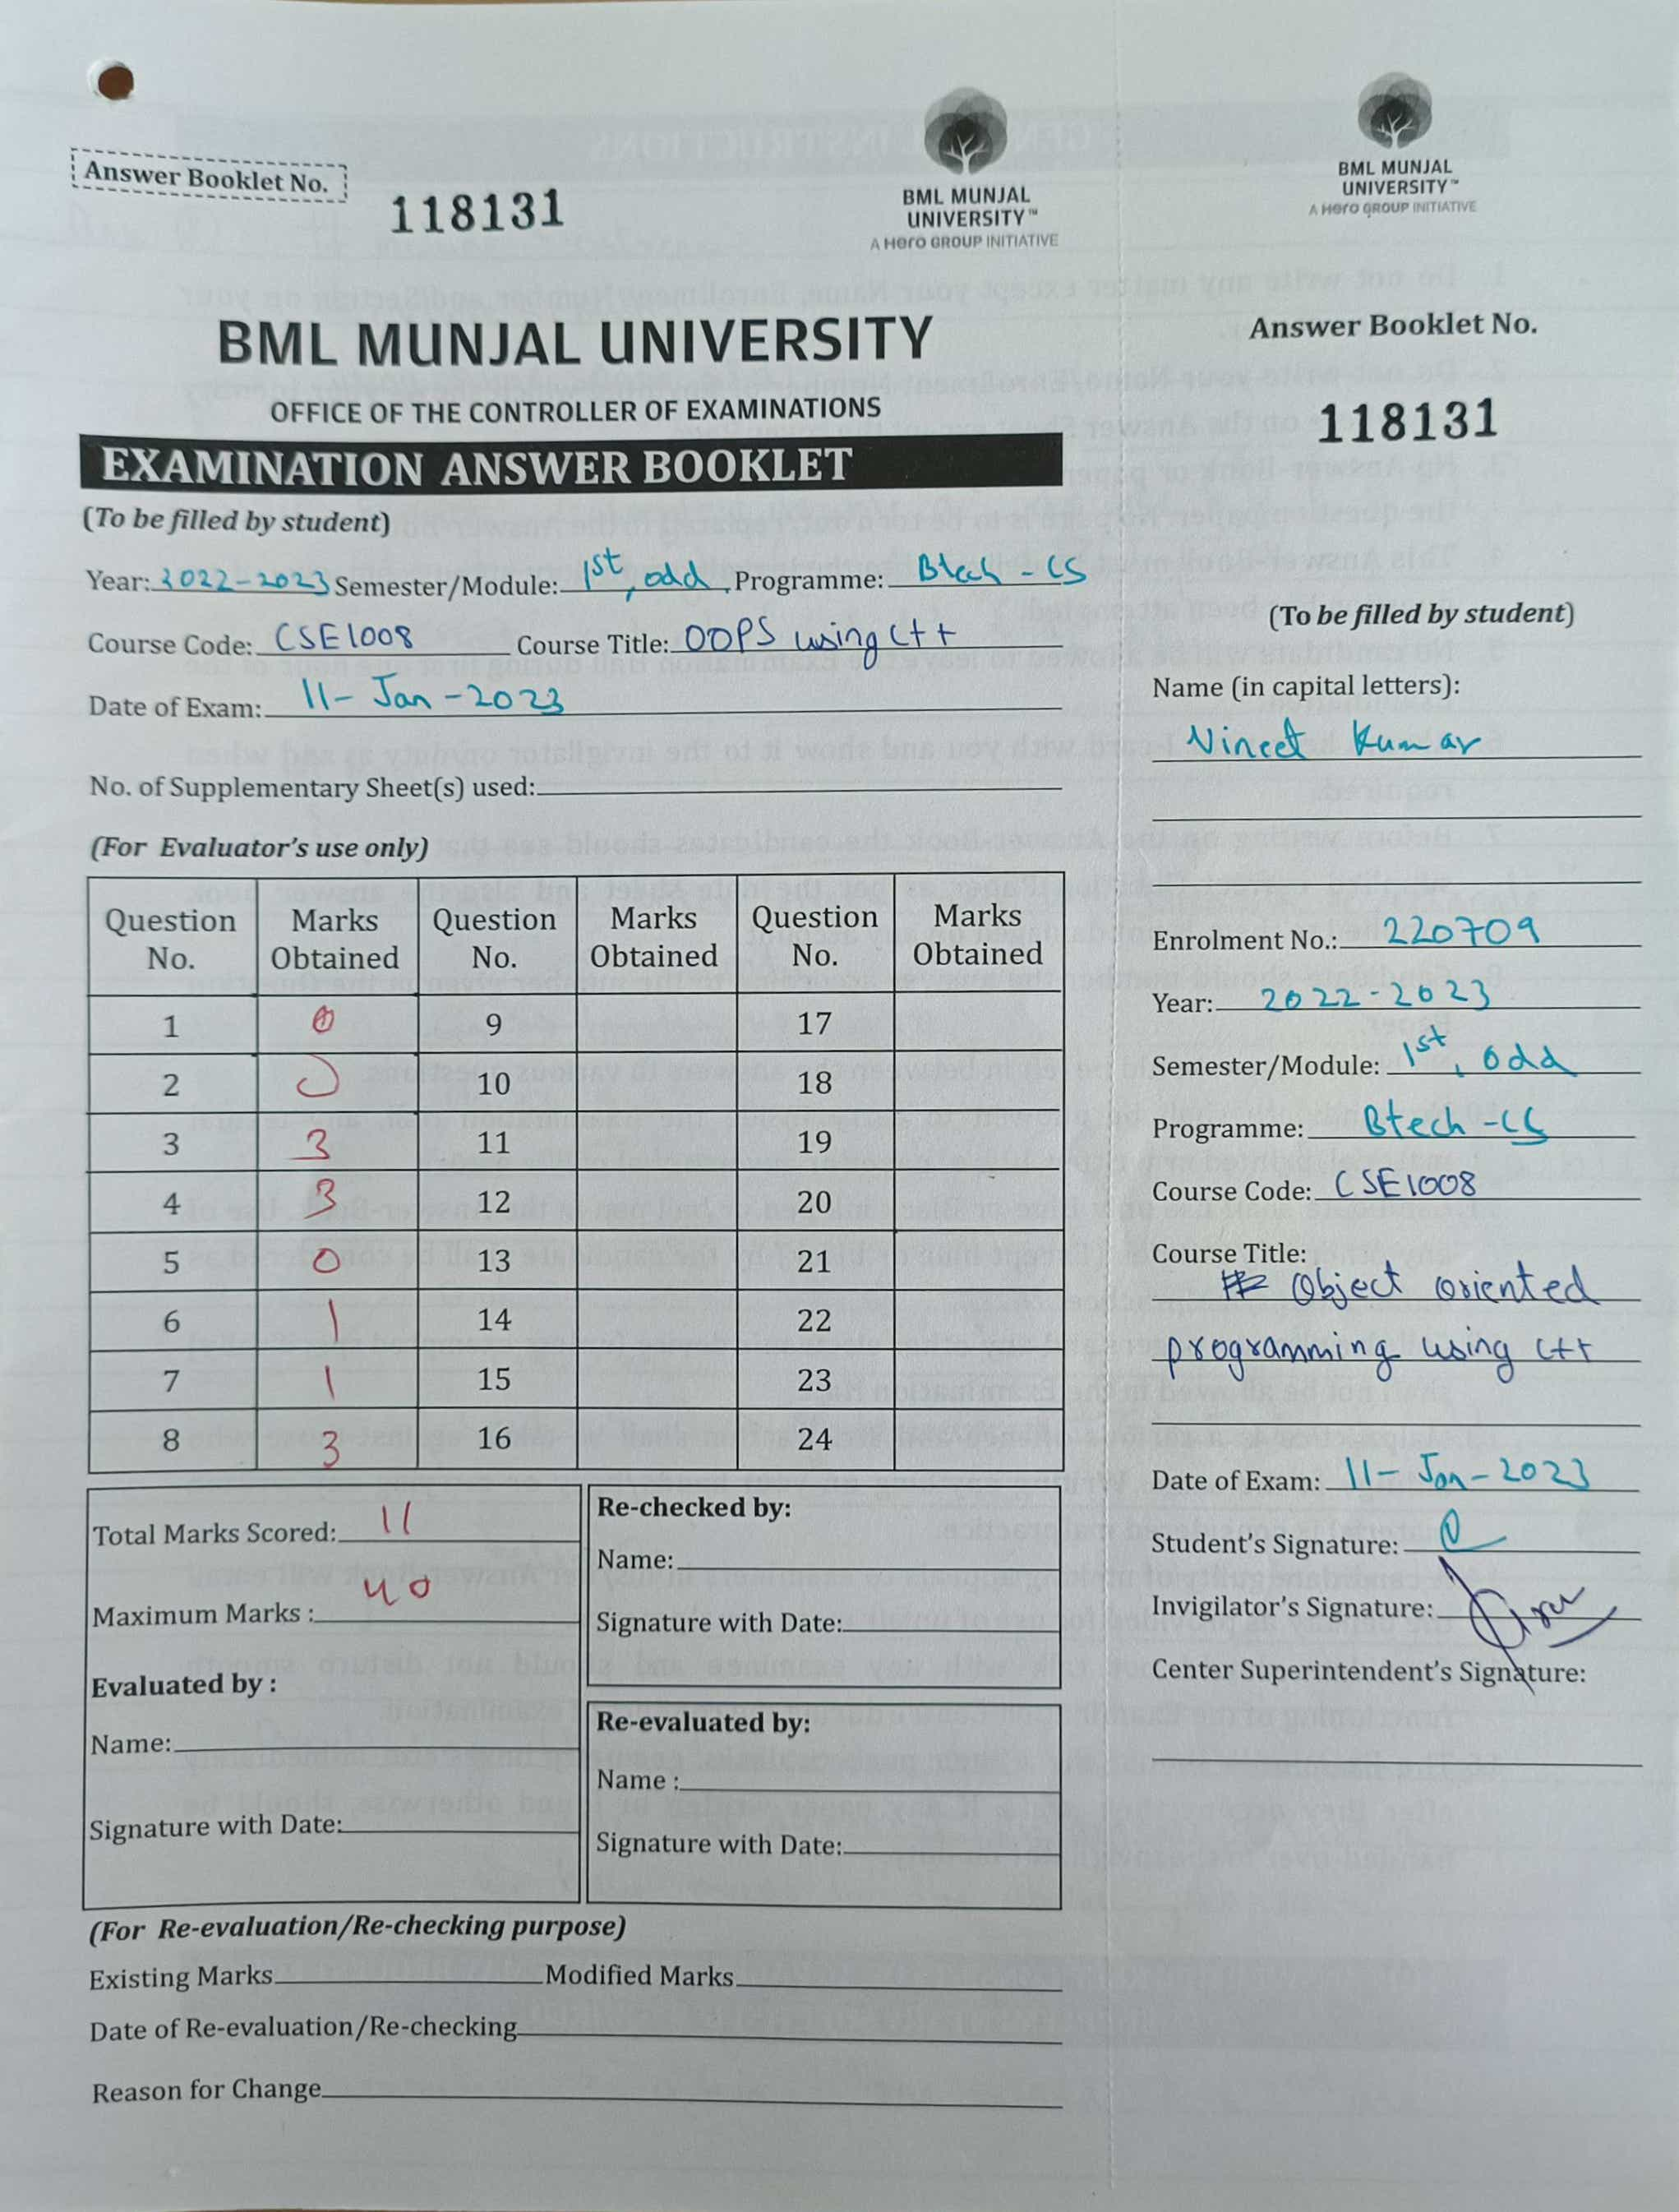 Answer Booklet No.
118131
BML MUNJAL
UNIVERSITY™
A Hero GROUP INITIATIVE
BML MUNJAL UNIVERSITY
OFFICE OF THE CONTROLLER OF EXAMINATIONS
EXAMINATION ANSWER BOOKLET
(To be filled by student)
Year: 2022-2023 Semester/Module: 1st, odd Programme: Btech - CS
Course Code: CSE1008 Course Title: OOPS using C++
Date of Exam: 11- Jan -2023
No. of Supplementary Sheet(s) used:
(For Evaluator's use only)
Question No. Marks Obtained Question No. Marks Obtained Question No. Marks Obtained
1 0 9 17
2 0 10 18
3 3 11 19
4 3 12 20
5 0 13 21
6 1 14 22
7 1 15 23
8 3 16 24
Total Marks Scored: 11
Maximum Marks : 40
Evaluated by :
Name:
Signature with Date:
Re-checked by:
Name:
Signature with Date:
Re-evaluated by:
Name :
Signature with Date:
(For Re-evaluation/Re-checking purpose)
Existing Marks Modified Marks
Date of Re-evaluation/Re-checking
Reason for Change
BML MUNJAL
UNIVERSITY™
A Hero GROUP INITIATIVE
Answer Booklet No.
118131
(To be filled by student)
Name (in capital letters):
Vineet Kumar
Enrolment No.: 220709
Year: 2022-2023
Semester/Module: 1st, odd
Programme: Btech -CS
Course Code: CSE1008
Course Title:
Object oriented
programming using C++
Date of Exam: 11- Jan-2023
Student's Signature:
Invigilator's Signature:
Center Superintendent's Signature: